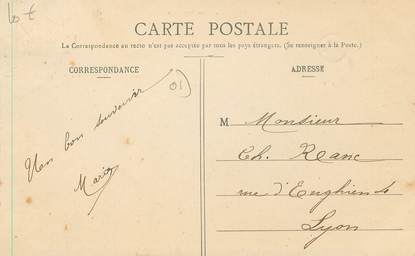 Lot
CARTE POSTALE
La Correspondance au recto n'est pas acceptée par tous les pays étrangers. (Se renseigner à la Poste.)
CORRESPONDANCE
01
Un bon souvenir
ADRESSE
M Monsieur
Ch.
rue d'Enghien 4
Lyon